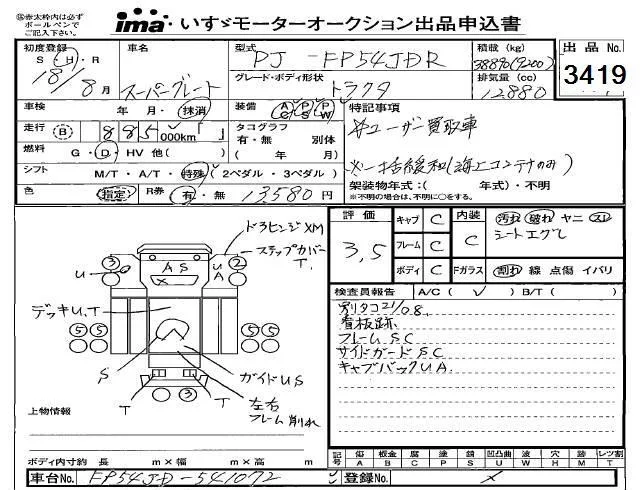 ⑧赤太枠内は必ず
ボールペンで
ご記入下さい。
ima いすゞモーターオークション出品申込書
初度登録 車名 型式 積載 (kg) 出品No.
S・H・R 18年 8月 スーパーグレート PJ-FP54JDR 3419
グレード・ボディ形状 トラクタ 排気量 (cc) 12,880
車検 年・月・抹消 装備 AC PS PW 特記事項
走行 (B) 885,000km「 」 タコグラフ 有・無 別体 ※ユーザー買取車
燃料 G・D・HV 他( ) ( 年 / 月)
シフト M/T・A/T・特殊 (2ペダル・3ペダル) ※一括緩和(海上コンテナのみ)
架装物年式:( 年式)・不明
色 指定 R券 有・無 13,580円 ※不明の場合は、不明に○をする。
評価 3.5 キャブ C 内装 C 汚れ 破れ ヤニ スレ
フレーム C シートエグレ
ボディ C Fガラス 割れ 線 点傷 イバリ
検査員報告 A/C( ✓ ) B/T( )
別タコ21/08.
看板跡.
フレームSC
サイドガードSC
キャブバックUA.
ドラヒンジXM
ステップカバーT.
③ U A S X U A ②
デッキU.T
⑤⑤ ⑤⑤
S ガイドUS
T T ③ 左右フレーム削れ
上物情報
ボディ内寸約 長 m×幅 m×高 m
記号 傷 板金 腐 塗 錆 凹凸曲 波 穴 跡 レツ割
A B C P S U W H M T
車台No. FP54JD-541072 登録No. ×